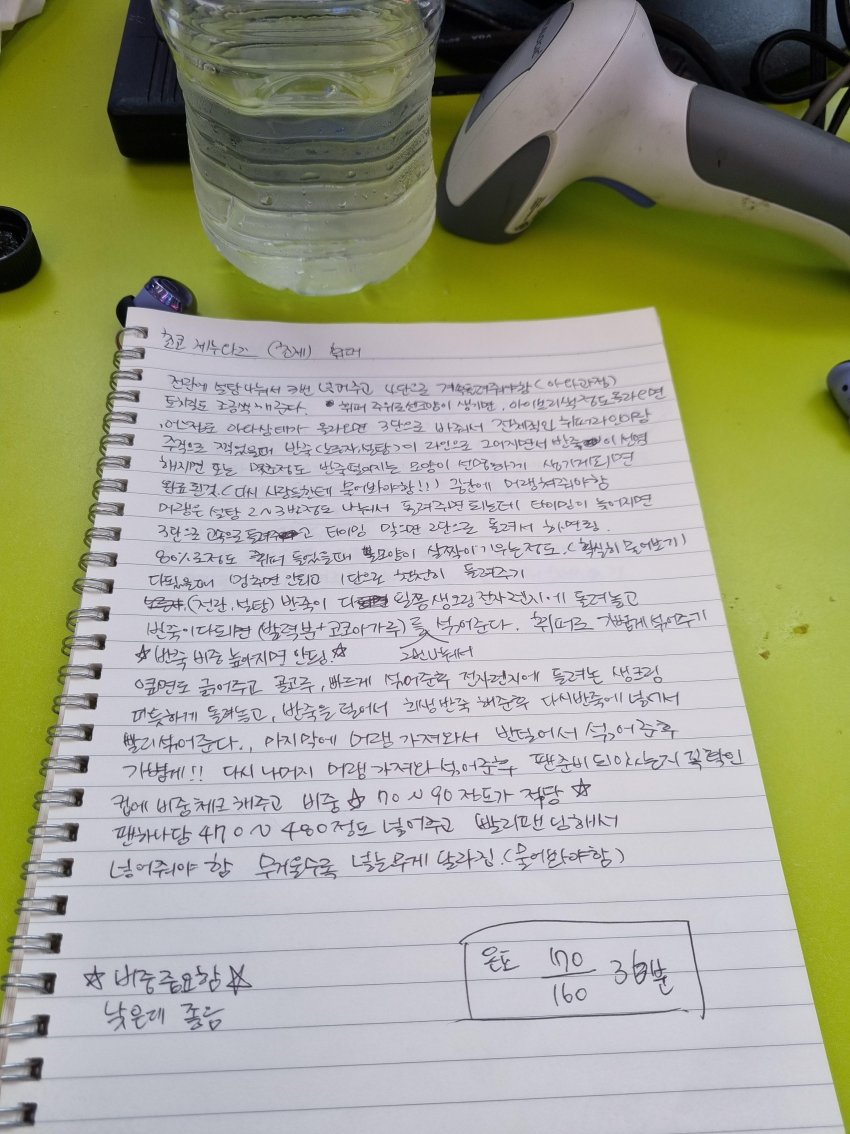 초코 제누와즈 (공제) 휘퍼
전란에 설탕 나눠서 3번 넣어주고 4단으로 계속 돌려줘야함 (
조금씩 해준다. 휘퍼 주위로 선모양이 생기면, 아이보리색 정도 올라오면
어느정도 상태가 올라오면 3단으로 바꿔서 전체적인 휘퍼라인이랑
반죽(노른자,설탕)이 라인으로 그어지면서 반죽이 선명
해지면 또는 정도 반죽 떨어지는 모양이 선명하게 생기게되면
완료된것.(다시 사람들한테 물어봐야함!!) 중간에 머랭쳐줘야함
머랭은 설탕 2~3번정도 나눠서 돌려주면 되는데 타이밍이 늦어지면
3단으로 고속으로 돌려주고 타이밍 맞으면 2단으로 돌려서 하면됨.
80%정도 휘퍼 들었을때 뿔모양이 살짝이 기우는정도.(확실히 물어보기)
다됬을때 멈추면 안되고 1단으로 천천히 돌려주기
(전란, 설탕) 반죽이 다 될쯤 생크림 전자렌지에 돌려놓고
반죽이다되면 (박력분+코코아가루)를 섞어준다. 휘퍼로 가볍게 섞어주기
☆반죽 비중 높아지면 안됨.☆ 2번나눠서
옆면도 긁어주고 골고루, 빠르게 섞어준후 전자렌지에 돌려논 생크림
따듯하게 돌려놓고, 반죽을 덜어서 희생반죽 해준후 다시반죽에 넣어서
빨리섞어준다., 마지막에 머랭 가져와서 반덜어서 섞어준후
가볍게!! 다시 나머지 머랭 가져와 섞어준후 팬준비되어있는지 꼭확인
컵에 비중체크 해주고 비중 ☆ 70~90 정도가 적당 ☆
팬하나당 470~480정도 넣어주고 빨리팬닝해서
넣어줘야 함 무거울수록 넣는무게 달라짐.(물어봐야함)
☆ 비중중요함 ☆
낮은데 좋음
온도 170
160
분